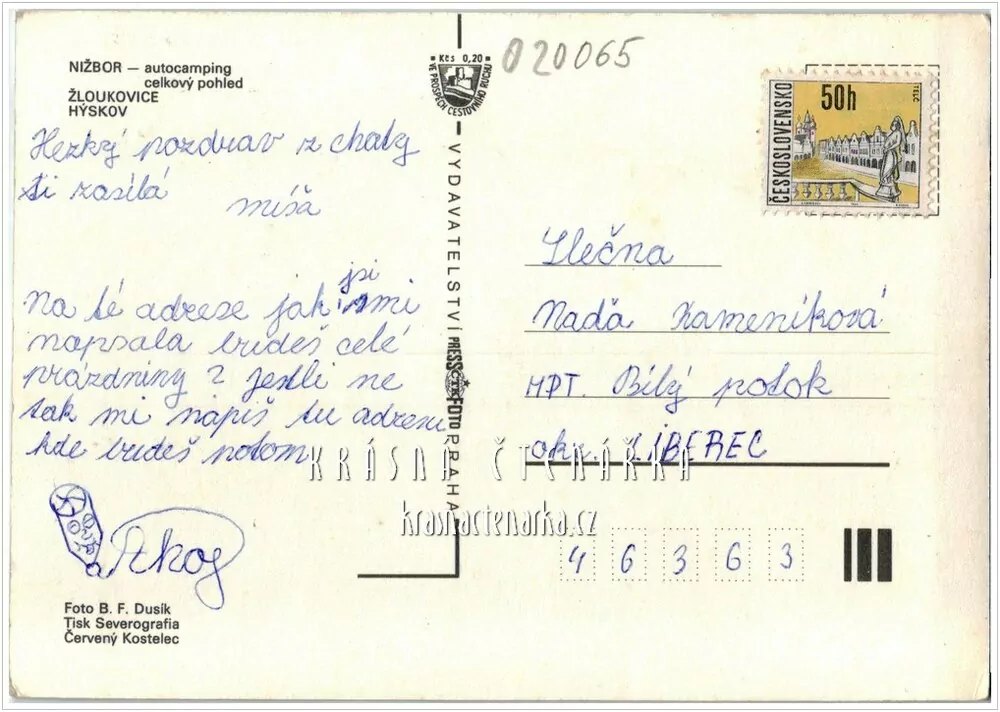 NIŽBOR — autocamping
celkový pohled
ŽLOUKOVICE
HÝSKOV
Hezký pozdrav z chaty
ti zasílá
míša
Na té adrese jak jsi mi
napsala budeš celé
prázdniny? jestli ne
tak mi napiš tu adresu
kde budeš potom
Foto B. F. Dusík
Tisk Severografia
Červený Kostelec
Kčs 0,20
VE PROSPĚCH CESTOVNÍHO RUCHU
VYDAVATELSTVÍ PRESSFOTO PRAHA
ČTK
020065
ČESKOSLOVENSKO
50h
TELČ
Slečna
Naďa Kameníková
HPT. Bílý potok
okr. LIBEREC
46363
KRÁSNÁ ČTENÁŘKA
krasnactenarka.cz